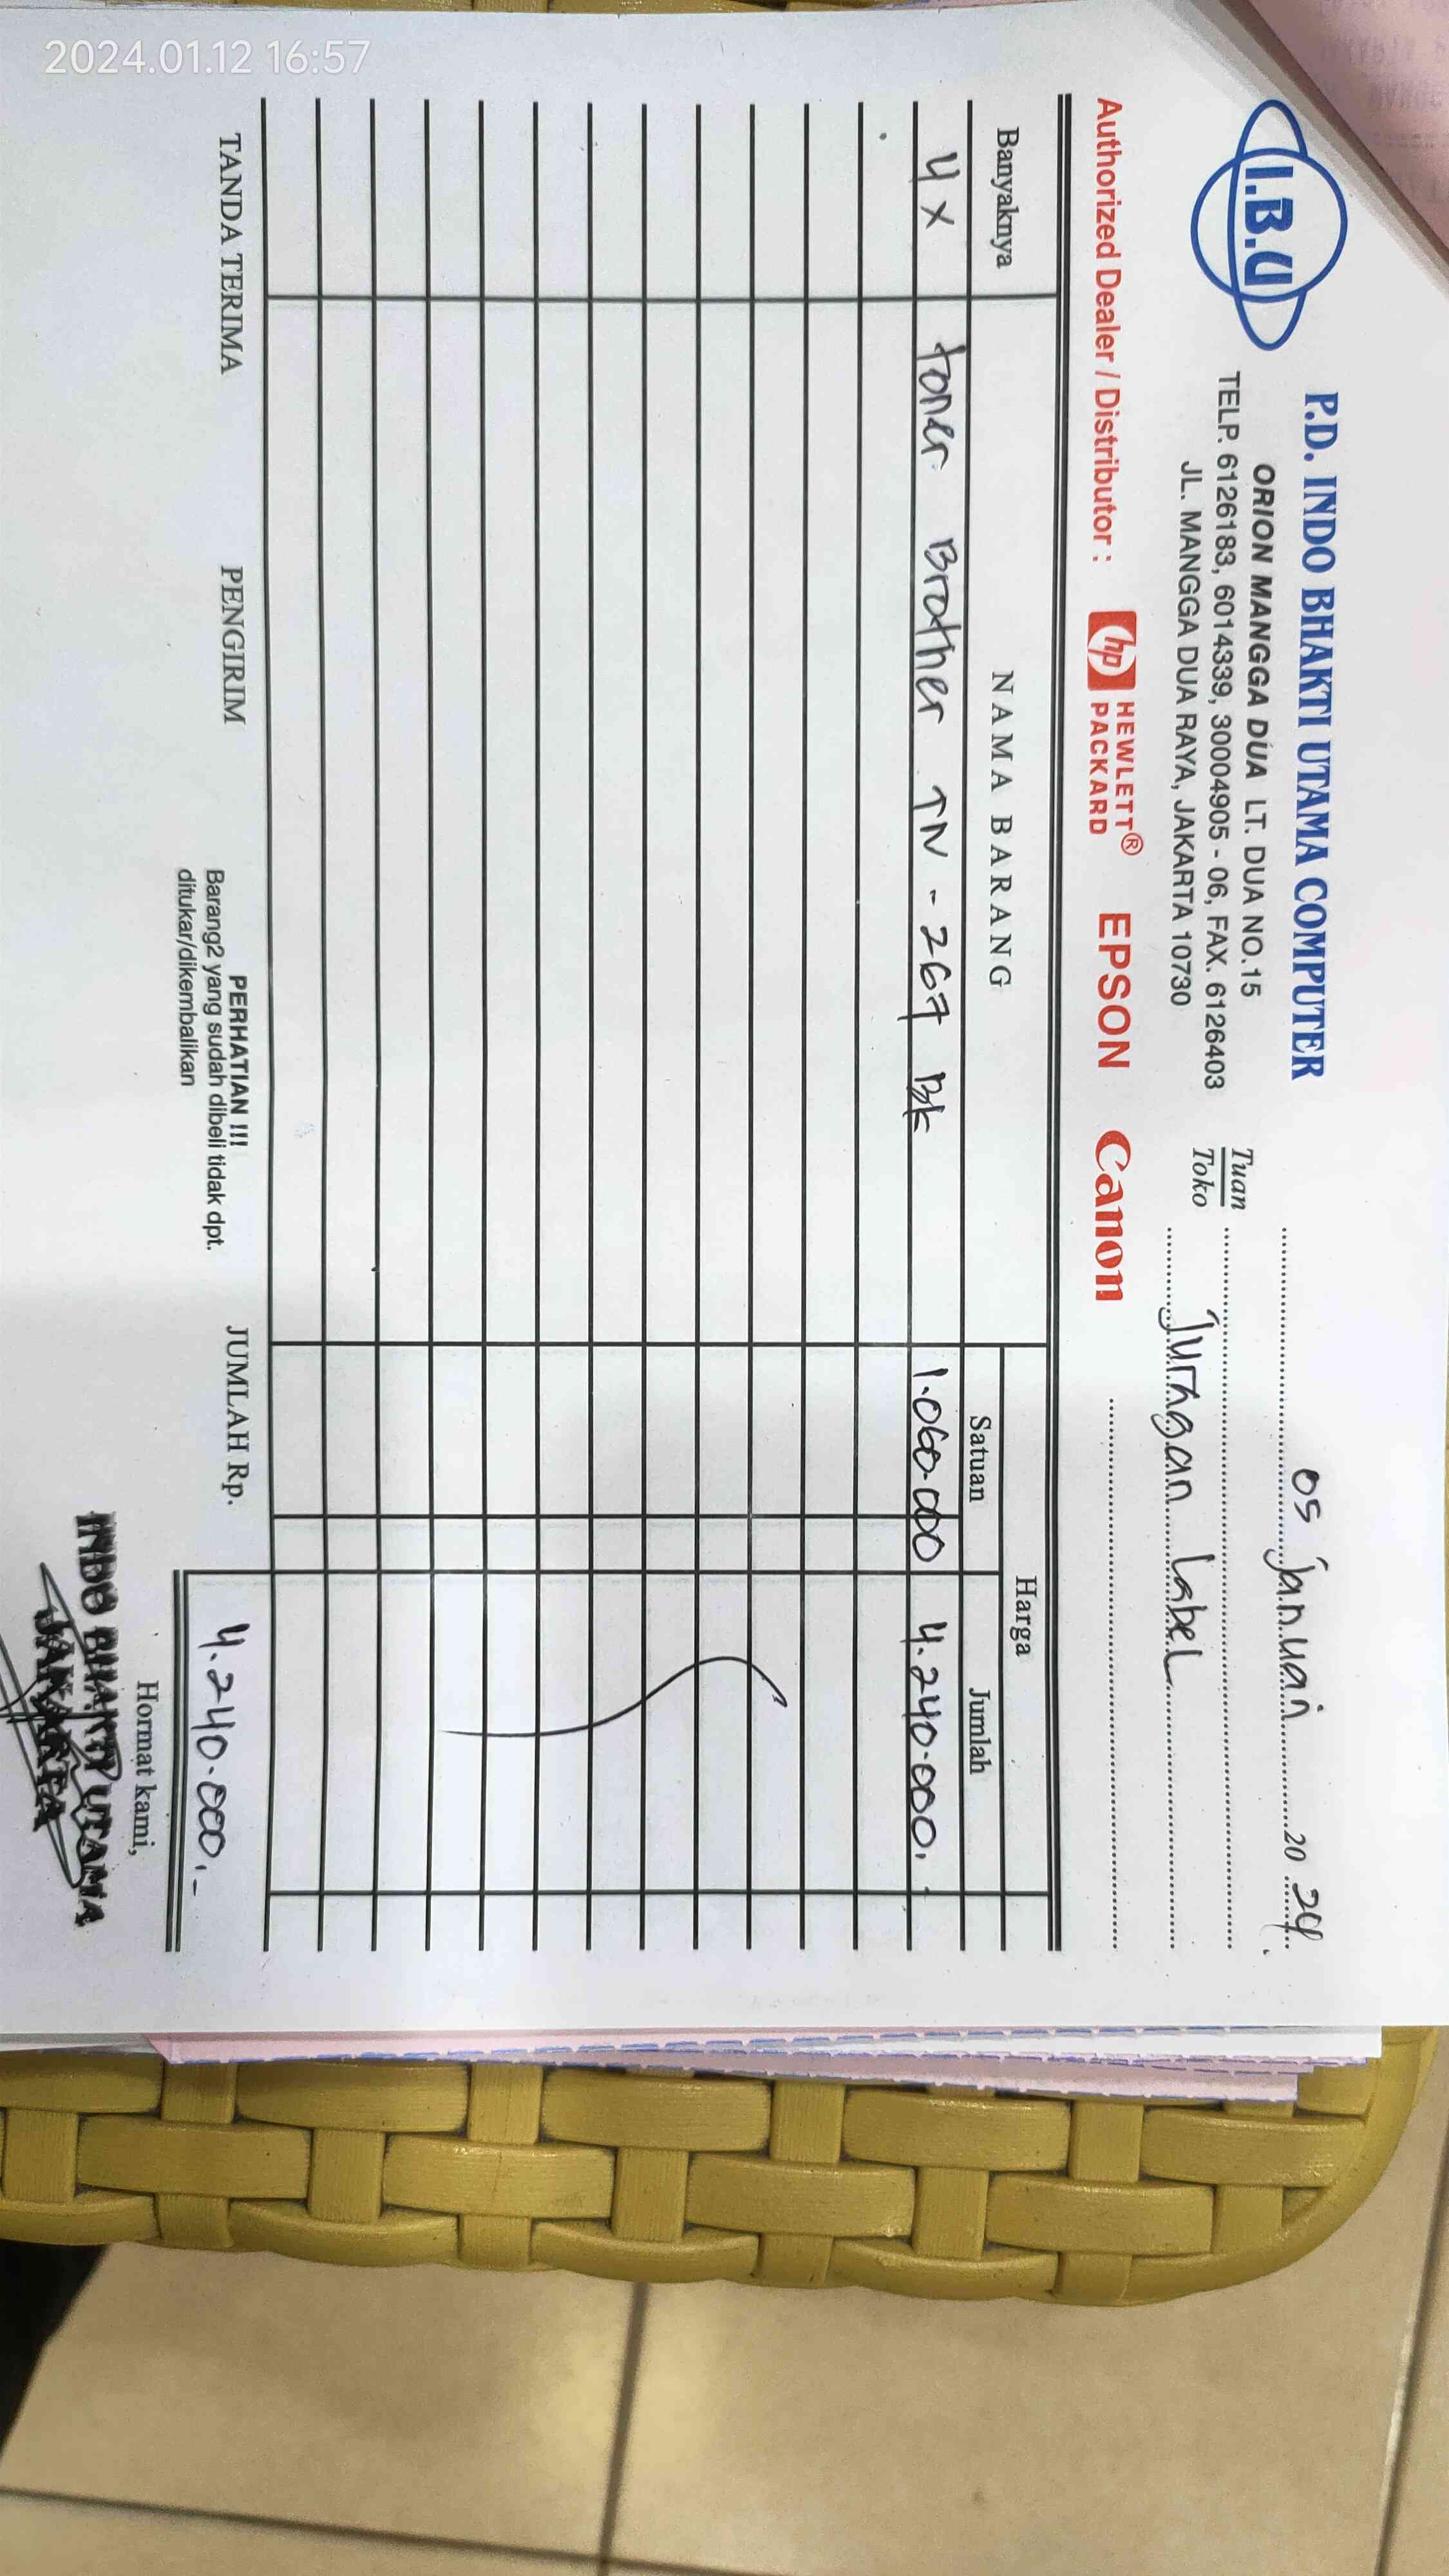 2024.01.12 16:57
I.B.U
P.D. INDO BHAKTI UTAMA COMPUTER
ORION MANGGA DUA LT. DUA NO.15
TELP. 6126183, 6014339, 30004905 - 06, FAX. 6126403
JL. MANGGA DUA RAYA, JAKARTA 10730
05 Januari 20 24
Tuan
Toko
Juragan Label
Authorized Dealer / Distributor : hp HEWLETT® PACKARD EPSON Canon
Banyaknya NAMA BARANG Harga
Satuan Jumlah
4 x toner Brother TN - 267 BK 1.060.000 4.240.000,-
TANDA TERIMA PENGIRIM PERHATIAN !!! JUMLAH Rp. 4.240.000,-
Barang2 yang sudah dibeli tidak dpt.
ditukar/dikembalikan
Hormat kami,
INDO BHAKTI UTAMA
JAKARTA